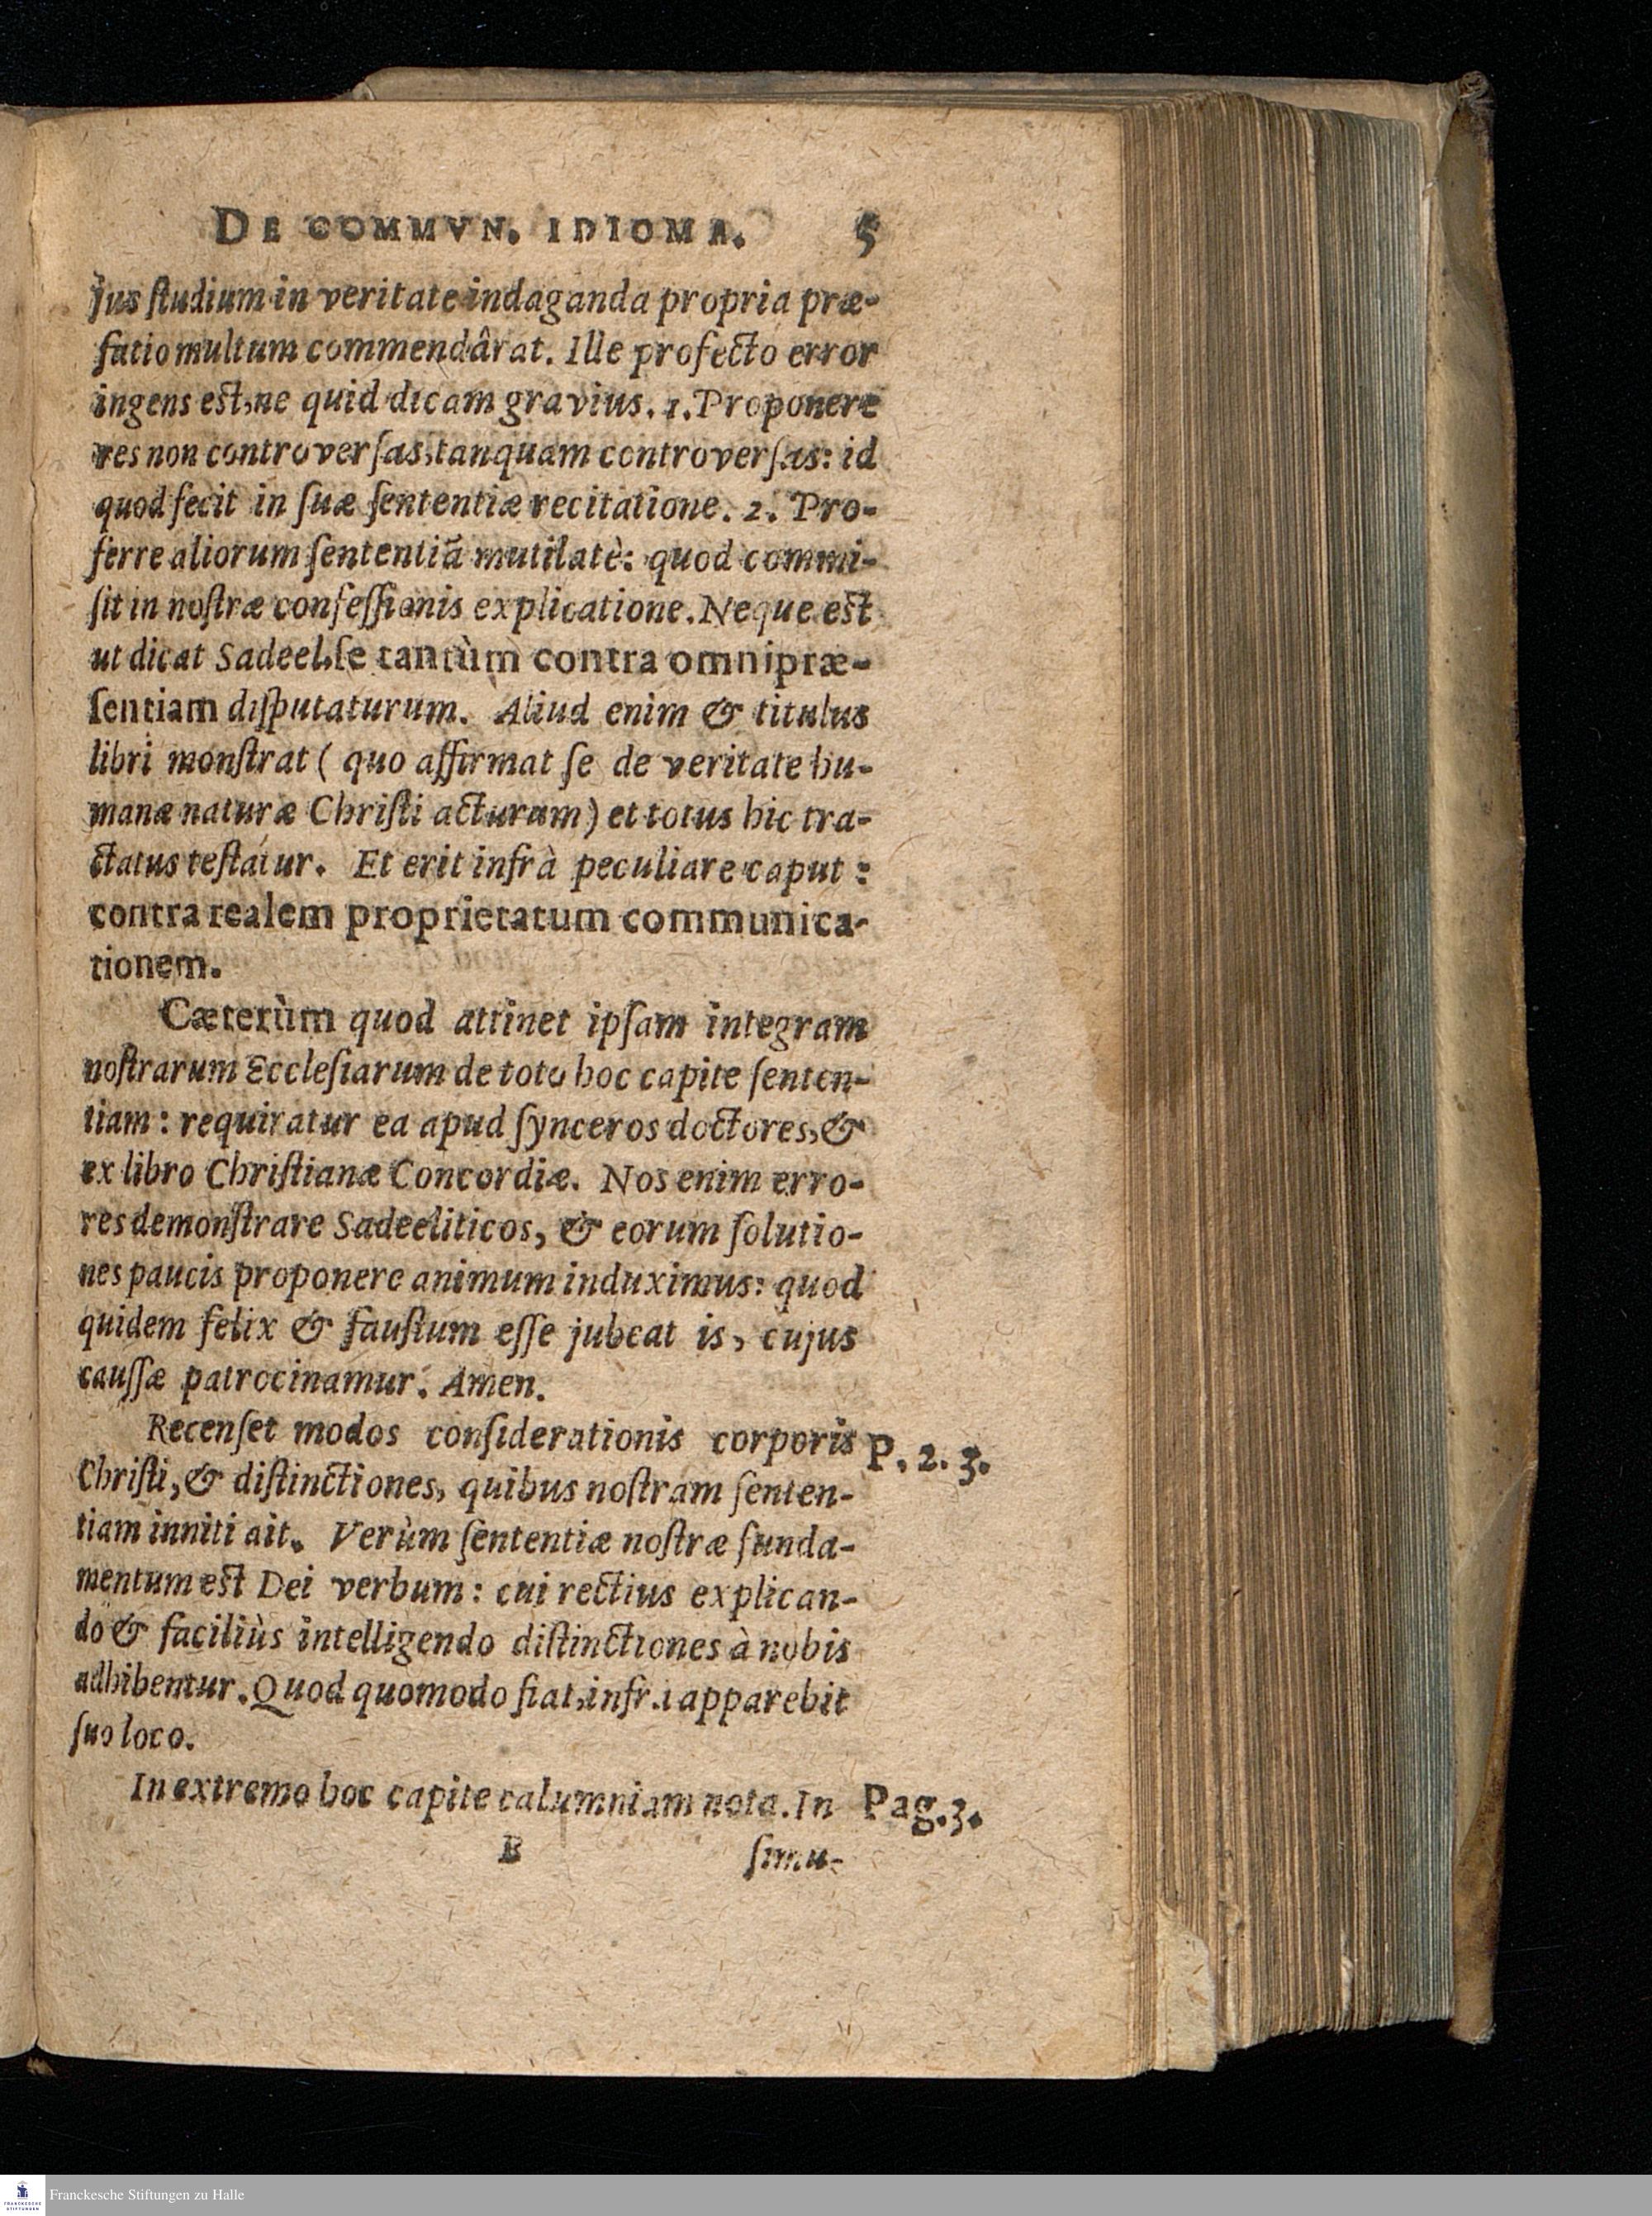 DE COMMVN. IDIOMA. 5
jus ſtudium in veritate indaganda propria præ-
fatio multum commendârat. Ille profecto error
ingens est, ne quid dicam gravius. 1. Proponere
res non controverſas, tanquam controverſas: id
quod fecit in ſuæ ſententiæ recitatione. 2. Pro-
ferre aliorum ſententiā mutilatè: quod commi-
ſit in noſtræ confeſſionis explicatione. Neque est
ut dicat Sadeel, ſe tantùm contra omnipræ-
ſentiam diſputaturum. Aliud enim & titulus
libri monſtrat ( quo affirmat ſe de veritate hu-
manæ naturæ Chriſti acturum) et totus hic tra-
ctatus teſtatur. Et erit infrà peculiare caput:
contra realem proprietatum communica-
tionem.
Cæterùm quod attinet ipſam integram
noſtrarum Eccleſiarum de toto hoc capite ſenten-
tiam: requiratur ea apud ſynceros doctores, &
ex libro Chriſtianæ Concordiæ. Nos enim erro-
res demonſtrare Sadeeliticos, & eorum ſolutio-
nes paucis proponere animum induximus: quod
quidem felix & fauſtum eſſe jubeat is, cujus
cauſſæ patrocinamur. Amen.
Recenſet modos conſiderationis corporis P. 2. 3.
Chriſti, & diſtinctiones, quibus noſtram ſenten-
tiam inniti ait. Verùm ſententiæ noſtræ funda-
mentum est Dei verbum: cui rectius explican-
do & faciliùs intelligendo diſtinctiones à nobis
adhibentur. Quod quomodo fiat, infrà apparebit
ſuo loco.
In extremo hoc capite calumniam nota. In Pag. 3.
B ſimu-
Franckesche Stiftungen zu Halle